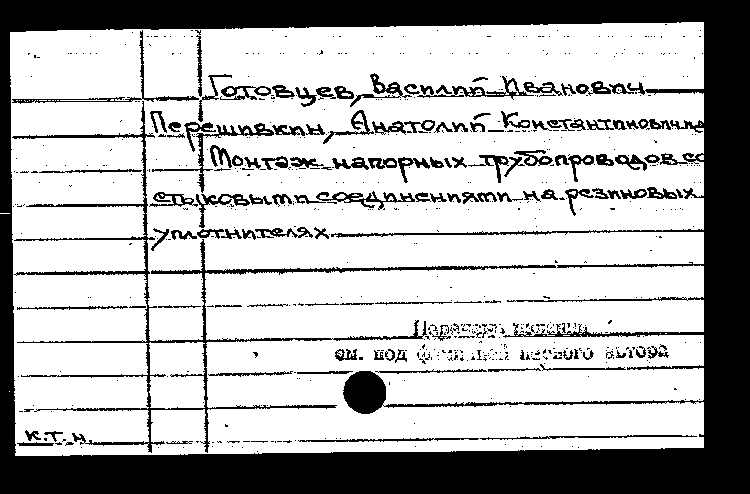 Готовцев, Василий Иванович
Перешивкин, Анатолий Константинович.
Монтаж напорных трубопроводов со
стыковыми соединениями на резиновых
уплотнителях
Перечень изданий
см. под фамилией первого автора
к.т.н.